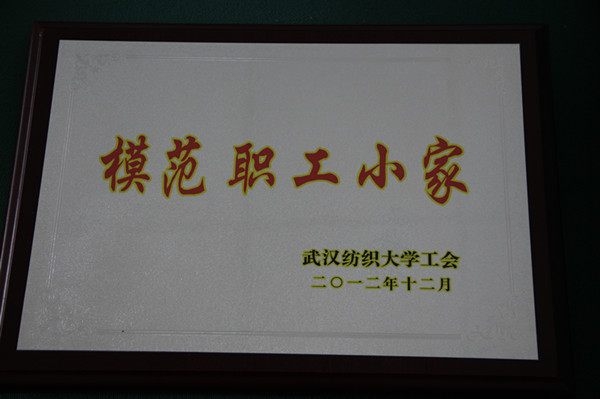 模范职工小家
武汉纺织大学工会
二〇一二年十二月